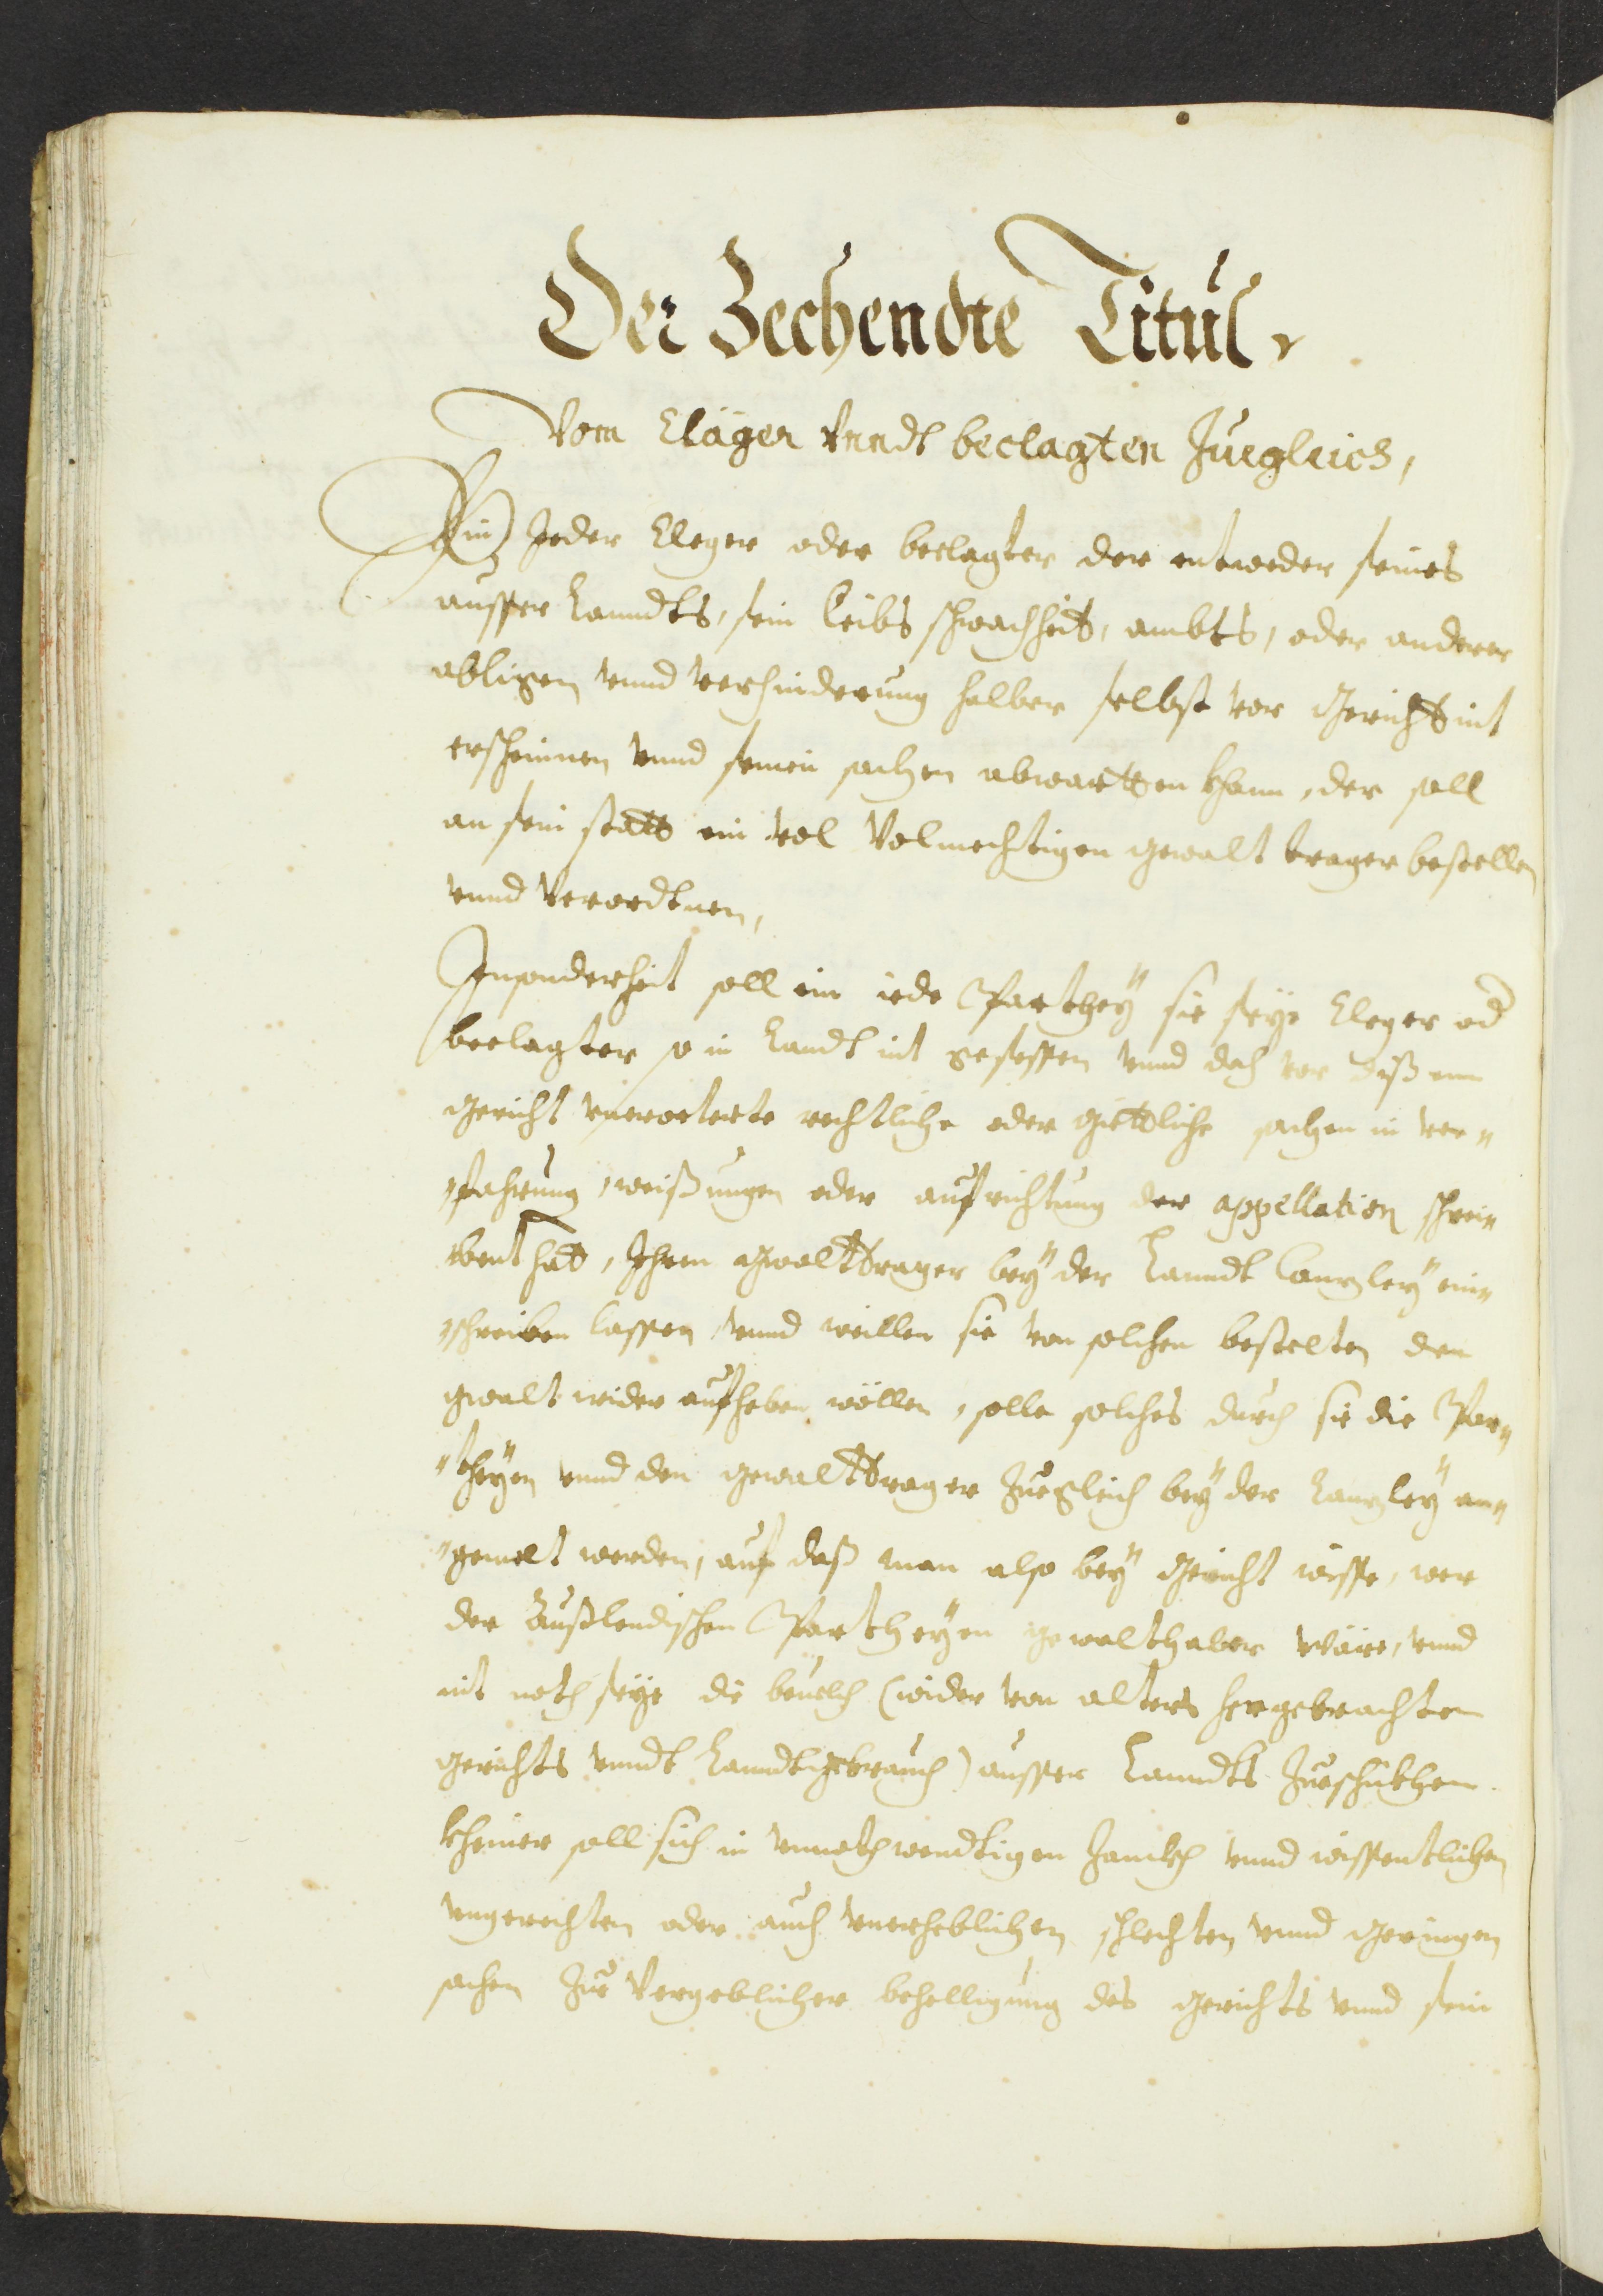 Der Zechendte Titul,
Vom Cläger Vnndt beclagten Zuegleich,
Ein Jeder Cleger oder beclagter der entweder seines
ausser Lanndts, sein Leibs schwachheit, ambts, oder anderer
obligen vnnd verhinderung halber selbst vor Gericht nit
erscheinnen vnnd seinen sachen abwartten khann, der soll
an sein statt ein vol Volmechtigen gewalt trager bestellen
vnnd Verordtnen,
Insonderheit soll ein iede Parthey sie seye Cleger od
beclagter so in Landt nit gesessen vnnd doch vor dißem
gericht vnerorterte rechtliche oder güettliche sachen in ver„
„fahrung, weißungen oder aufrichtung der appellation schwe„
bent hat, Jhren gwalttrager bey der Lanndt Canzley ein„
„schreiben lassen, vnnd wellen sie von solchen bestelten den
gwalt wider aufheben wöllen, solle solches durch sie die Par„
„theyen vnnd den gewalttrager Zuegleich bey der Canzley an„
„gemelt werden, auf daß man also bey Gericht wisse, wer
der Außlendischen Partheyen gewalthaber wäre, vnnd
nit noth seye die beuelch (wider von alters hergebrachten
gerichts vnndt Lanndtgebrauch) ausser Lanndts Zueschükhen
kheiner soll sich in vnnothwendtigen Zanckh vnnd wissentlichen
vngerechten oder auch vnerheblichen schlechten vnnd geringen
sachen Zue Vergeblicher behelligung des gerichts vnnd sein